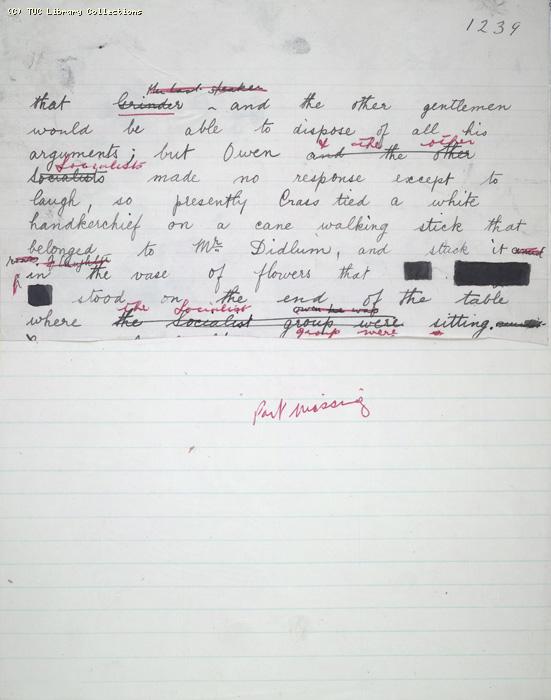 (C) TUC Library Collections
1239
the last speaker
that Grinder - and the other gentlemen
would be able to dispose of all his
arguments; but Owen and the other & the other
Socialists
Socialists made no response except to
laugh, so presently Crass tied a white
handkerchief on a cane walking stick that
belonged to Mr Didlum, and stuck it
in the vase of flowers that
stood on the end of the table
the Socialist Owen he was
where the Socialist group were sitting.
group were
Part missing